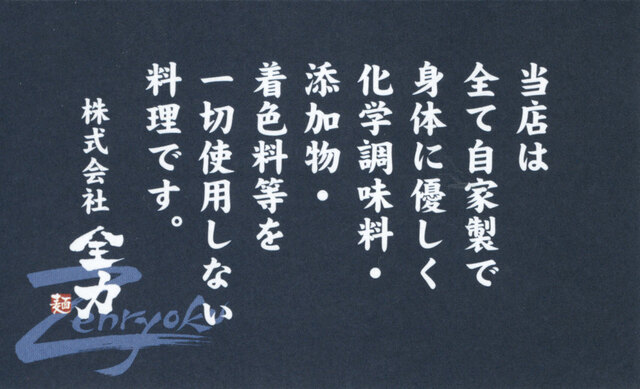 当店は
全て自家製で
身体に優しく
化学調味料・
添加物・
着色料等を
一切使用しない
料理です。
株式会社
全力
麺
Zenryoku